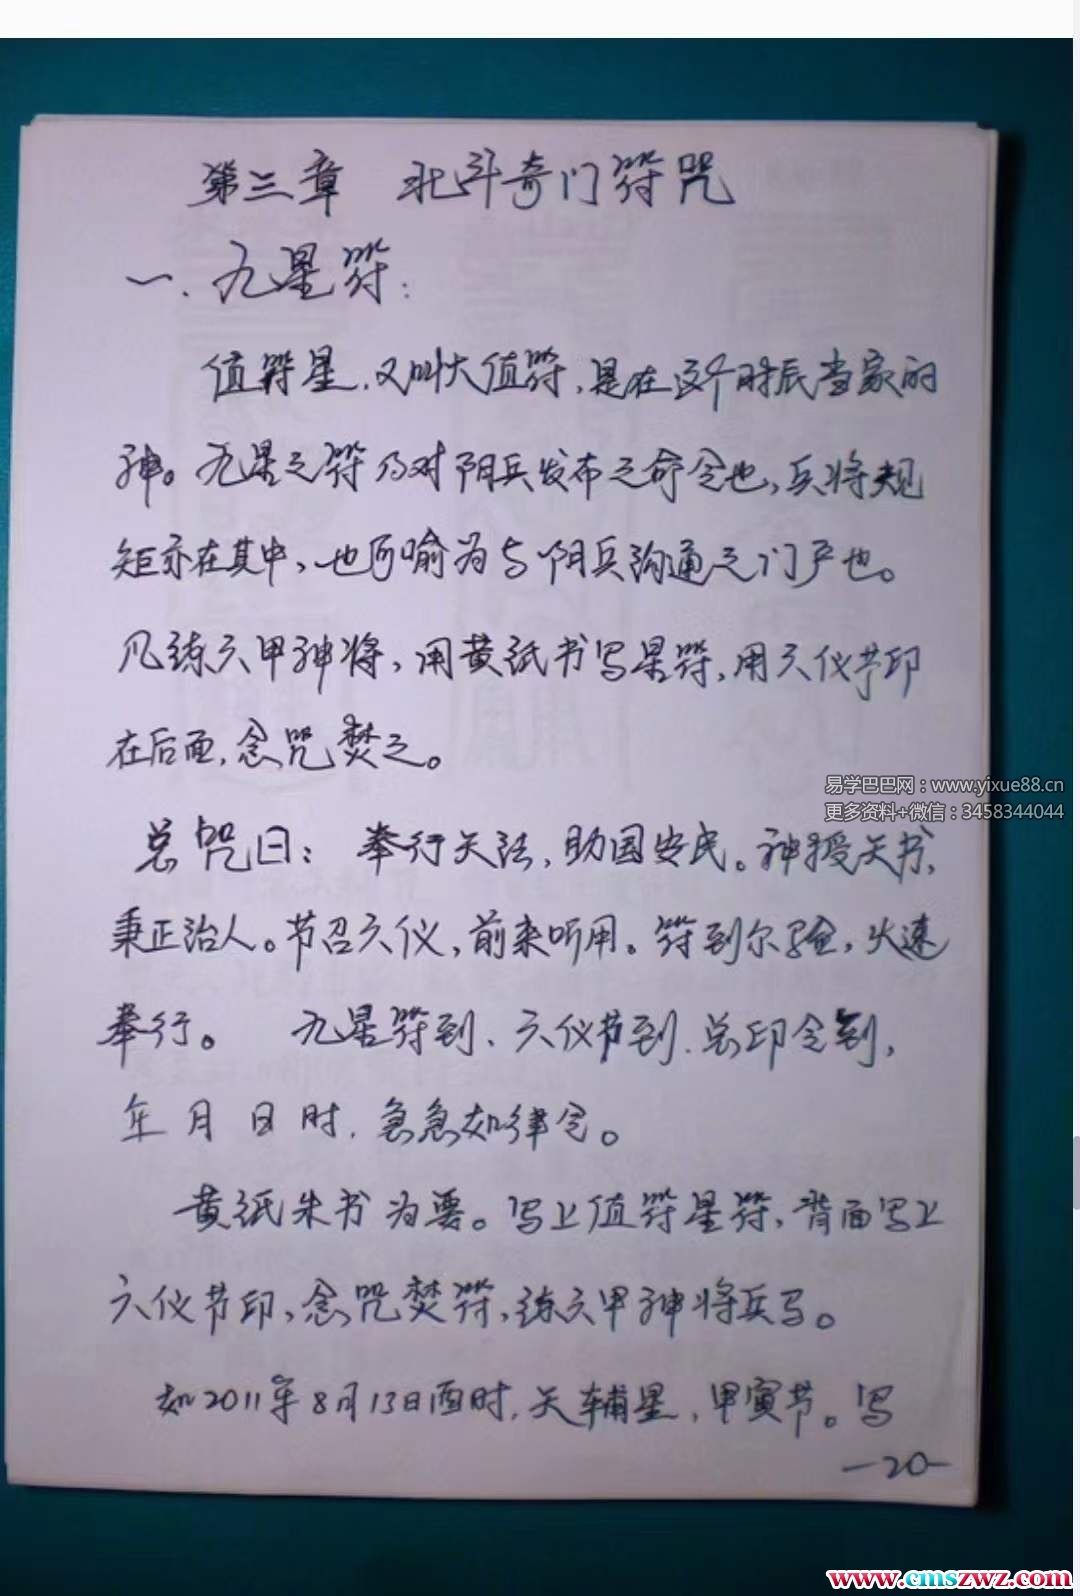 第三章 北斗奇门符咒
一、九星符：
值符星，又叫大值符，是在这个时辰当家的
神。九星之符乃对阴兵发布之命令也，兵将规
矩亦在其中，也可喻为与阴兵沟通之门户也。
凡练六甲神将，用黄纸书写星符，用六仪节印
在后面，念咒焚之。
易学巴巴网：www.yixue88.cn
更多资料+微信：3458344044
总咒曰：奉行天法，助国安民。神授天书，
秉正治人。节召六仪，前来听用。符到尔验，火速
奉行。 九星符到、六仪节到、总印令到，
年 月 日 时，急急如律令。
黄纸朱书为要。写上值符星符，背面写上
六仪节印，念咒焚符，练六甲神将兵马。
如2011年8月13日酉时，天辅星，甲寅节。写
—20—
www.cmszwz.com